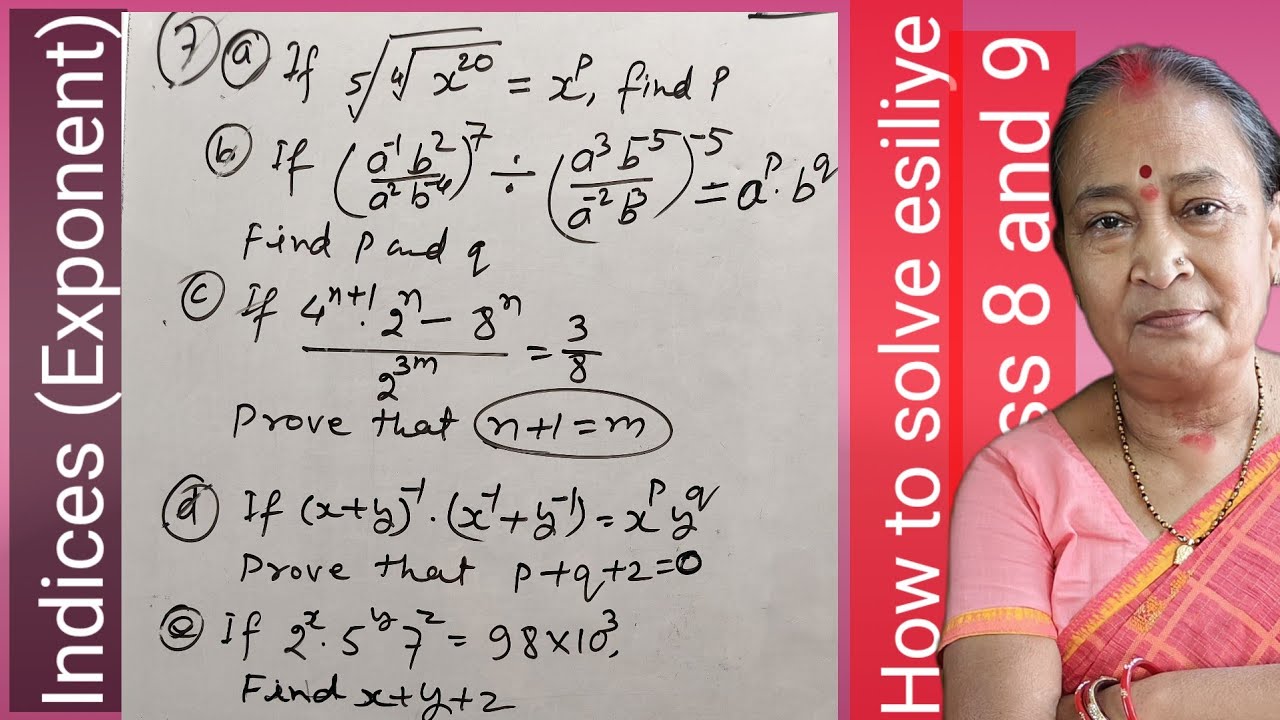 Indices (Exponent)
7 a If ⁵√(⁴√(x²⁰)) = xᵖ, find P
b If (a⁻¹b²/a²b⁻⁴)⁷ ÷ (a³b⁻⁵/a⁻²b³)⁻⁵ = aᵖ.b^q
Find P and q
c If (4ⁿ⁺¹.2ⁿ − 8ⁿ)/2³ᵐ = 3/8
Prove that n+1=m
d If (x+y)⁻¹.(x⁻¹+y⁻¹) = xᵖy^q
Prove that p+q+2=0
e If 2ˣ.5ʸ7ᶻ = 98×10³,
Find x+y+z
How to solve esiliye
ss 8 and 9